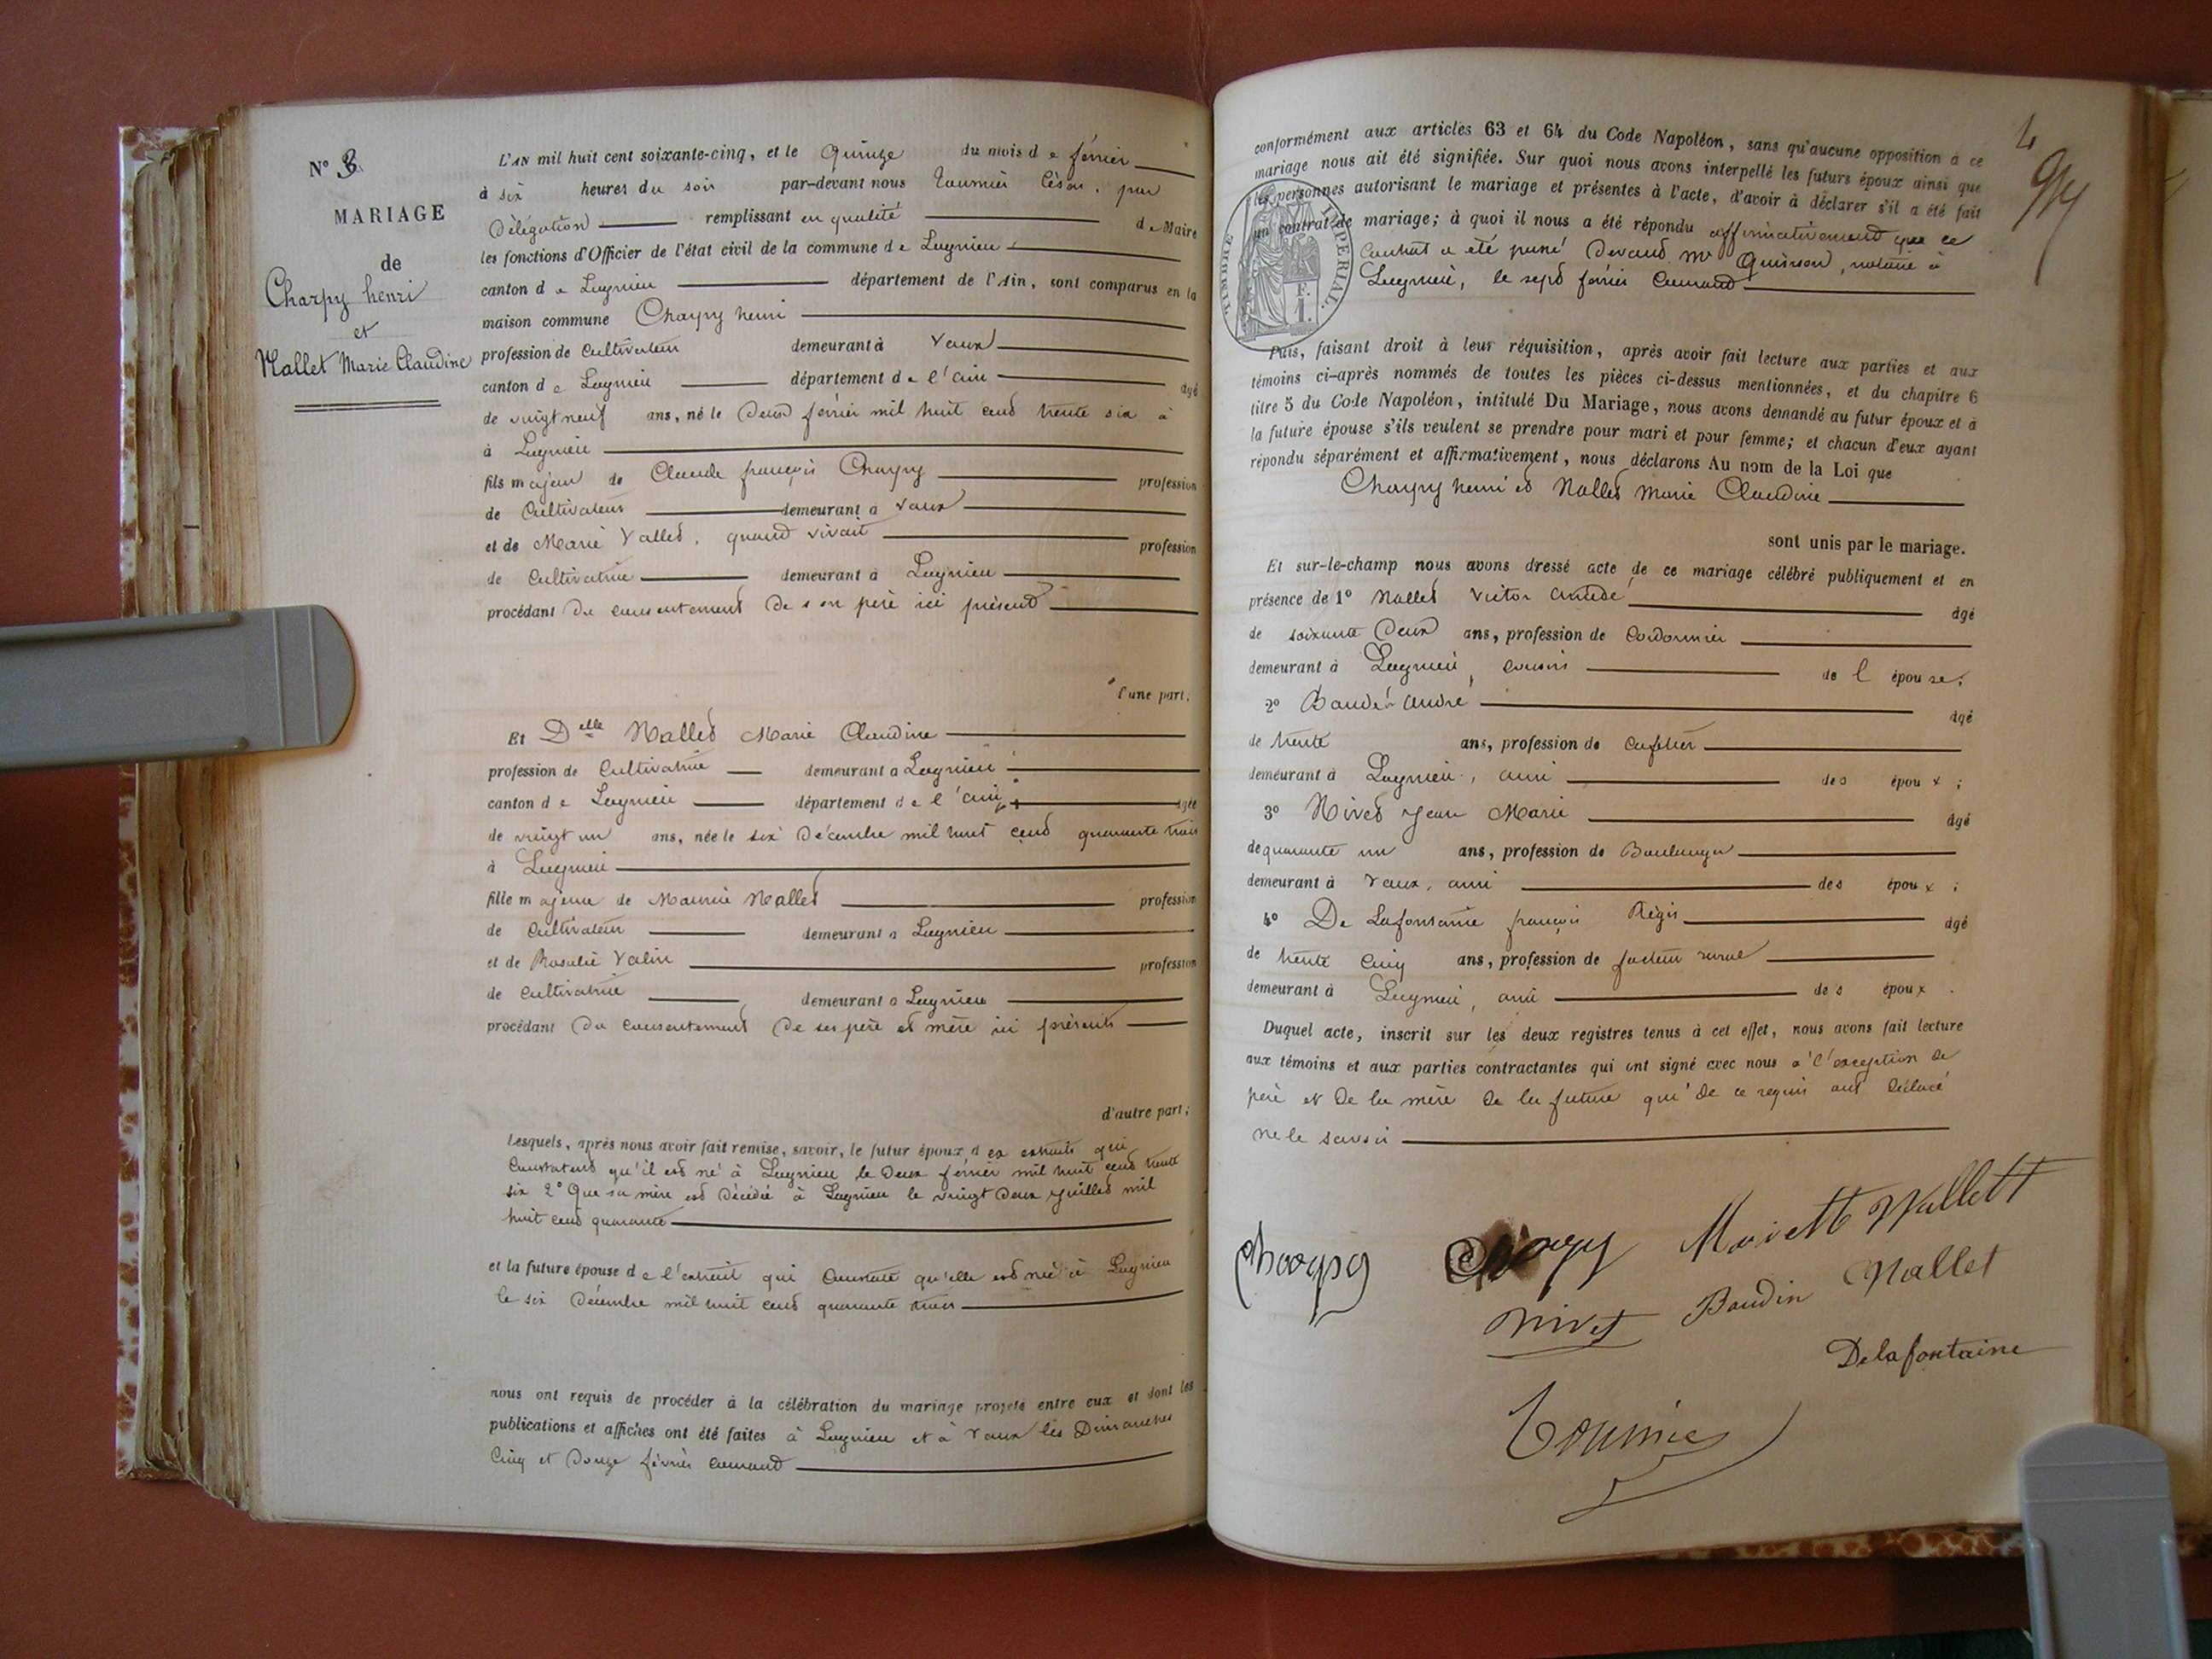 N° 3
MARIAGE
de
Charpy henri
et
Nallet Marie Claudine
L'AN mil huit cent soixante-cinq, et le quinze du mois de février
à six heures du soir par-devant nous Tournier César, par
Délégation remplissant en qualité de Maire
les fonctions d'Officier de l'état civil de la commune de Lagnieu
canton de Lagnieu département de l'Ain, sont comparus en la
maison commune Charpy henri
profession de Cultivateur demeurant à Vaux
canton de Lagnieu département de l'ain âgé
de vingt neuf ans, né le deux février mil huit cend trente six à
à Lagnieu
fils majeur de Claude françois Charpy profession
de Cultivateur demeurant à Vaux
et de Marie Valled, quand vivait profession
de Cultivatrice demeurant à Lagnieu
procédant du consentement de son père ici présend
d'une part;
Et Delle Nalled Marie Claudine
profession de Cultivatrice demeurant à Lagnieu
canton de Lagnieu département de l'ain, âgée
de vingt un ans, née le six Décembre mil huit cend quarante trois
à Lagnieu
fille majeure de Maurice Nalled profession
de Cultivateur demeurant à Lagnieu
et de Rosalie Valin profession
de Cultivatrice demeurant à Lagnieu
procédant du consentement de ses père et mère ici présents
d'autre part;
Lesquels, après nous avoir fait remise, savoir, le futur époux, des extraits qui
Constatent qu'il est né à Lagnieu le deux février mil huit cend trente
six 2° Que sa mère est Décédée à Lagnieu le vingt deux juilled mil
huit cend quarante
et la future épouse de l'extrait qui Constate qu'elle est née à Lagnieu
le six Décembre mil huit cend quarante trois
nous ont requis de procéder à la célébration du mariage projeté entre eux et dont les
publications et affiches ont été faites à Lagnieu et à Vaux les Dimanches
Cinq et Douze février courand
4
conformément aux articles 63 et 64 du Code Napoléon, sans qu'aucune opposition à ce
mariage nous ait été signifiée. Sur quoi nous avons interpellé les futurs époux ainsi que
les personnes autorisant le mariage et présentes à l'acte, d'avoir à déclarer s'il a été fait
un contrat de mariage; à quoi il nous a été répondu affirmativement que ce
Contrat a été passé Devand Me Quinson, notaire à
Lagnieu, le sept février Courand
TIMBRE IMPÉRIAL
F.
1.
Puis, faisant droit à leur réquisition, après avoir fait lecture aux parties et aux
témoins ci-après nommés de toutes les pièces ci-dessus mentionnées, et du chapitre 6
titre 5 du Code Napoléon, intitulé Du Mariage, nous avons demandé au futur époux et à
la future épouse s'ils veulent se prendre pour mari et pour femme; et chacun d'eux ayant
répondu séparément et affirmativement, nous déclarons Au nom de la Loi que
Charpy henri et Nalled Marie Claudine
sont unis par le mariage.
Et sur-le-champ nous avons dressé acte de ce mariage célébré publiquement et en
présence de 1° Nalled Victor amédé âgé
de soixante Deux ans, profession de Cordonnier
demeurant à Lagnieu, cousin de l épouse;
2° Baudin André âgé
de trente ans, profession de Cafetier
demeurant à Lagnieu, ami des époux;
3° Nived Jean Marie âgé
de quarante un ans, profession de Boulanger
demeurant à Vaux, ami des époux;
4° De Lafontaine françois Régis âgé
de trente Cinq ans, profession de facteur rural
demeurant à Lagnieu, ami des époux.
Duquel acte, inscrit sur les deux registres tenus à cet effet, nous avons fait lecture
aux témoins et aux parties contractantes qui ont signé avec nous à l'exception de
père et de la mère de la future qui de ce requis ont Déclaré
ne le savoir
Charpy Charpy Mariett Nallett
Nivet Baudin Nallet
Delafontaine
Tournier